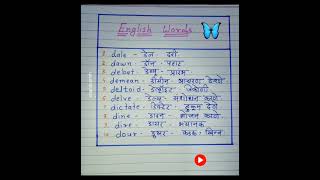 English Words
1 dale - डेल - दरी
2 dawn - डॉन - पहाट
3 debut - डेब्यू - प्रारंभ
4 demean - डीमीन -
5 deltoid -
6 delve - डेल्व -
7 dictate - डिक्टेट - हुकूम देणे
8 dine - डाइन - भोजन करणे
9 dire - डायर - भयानक
10 dour - डूअर -